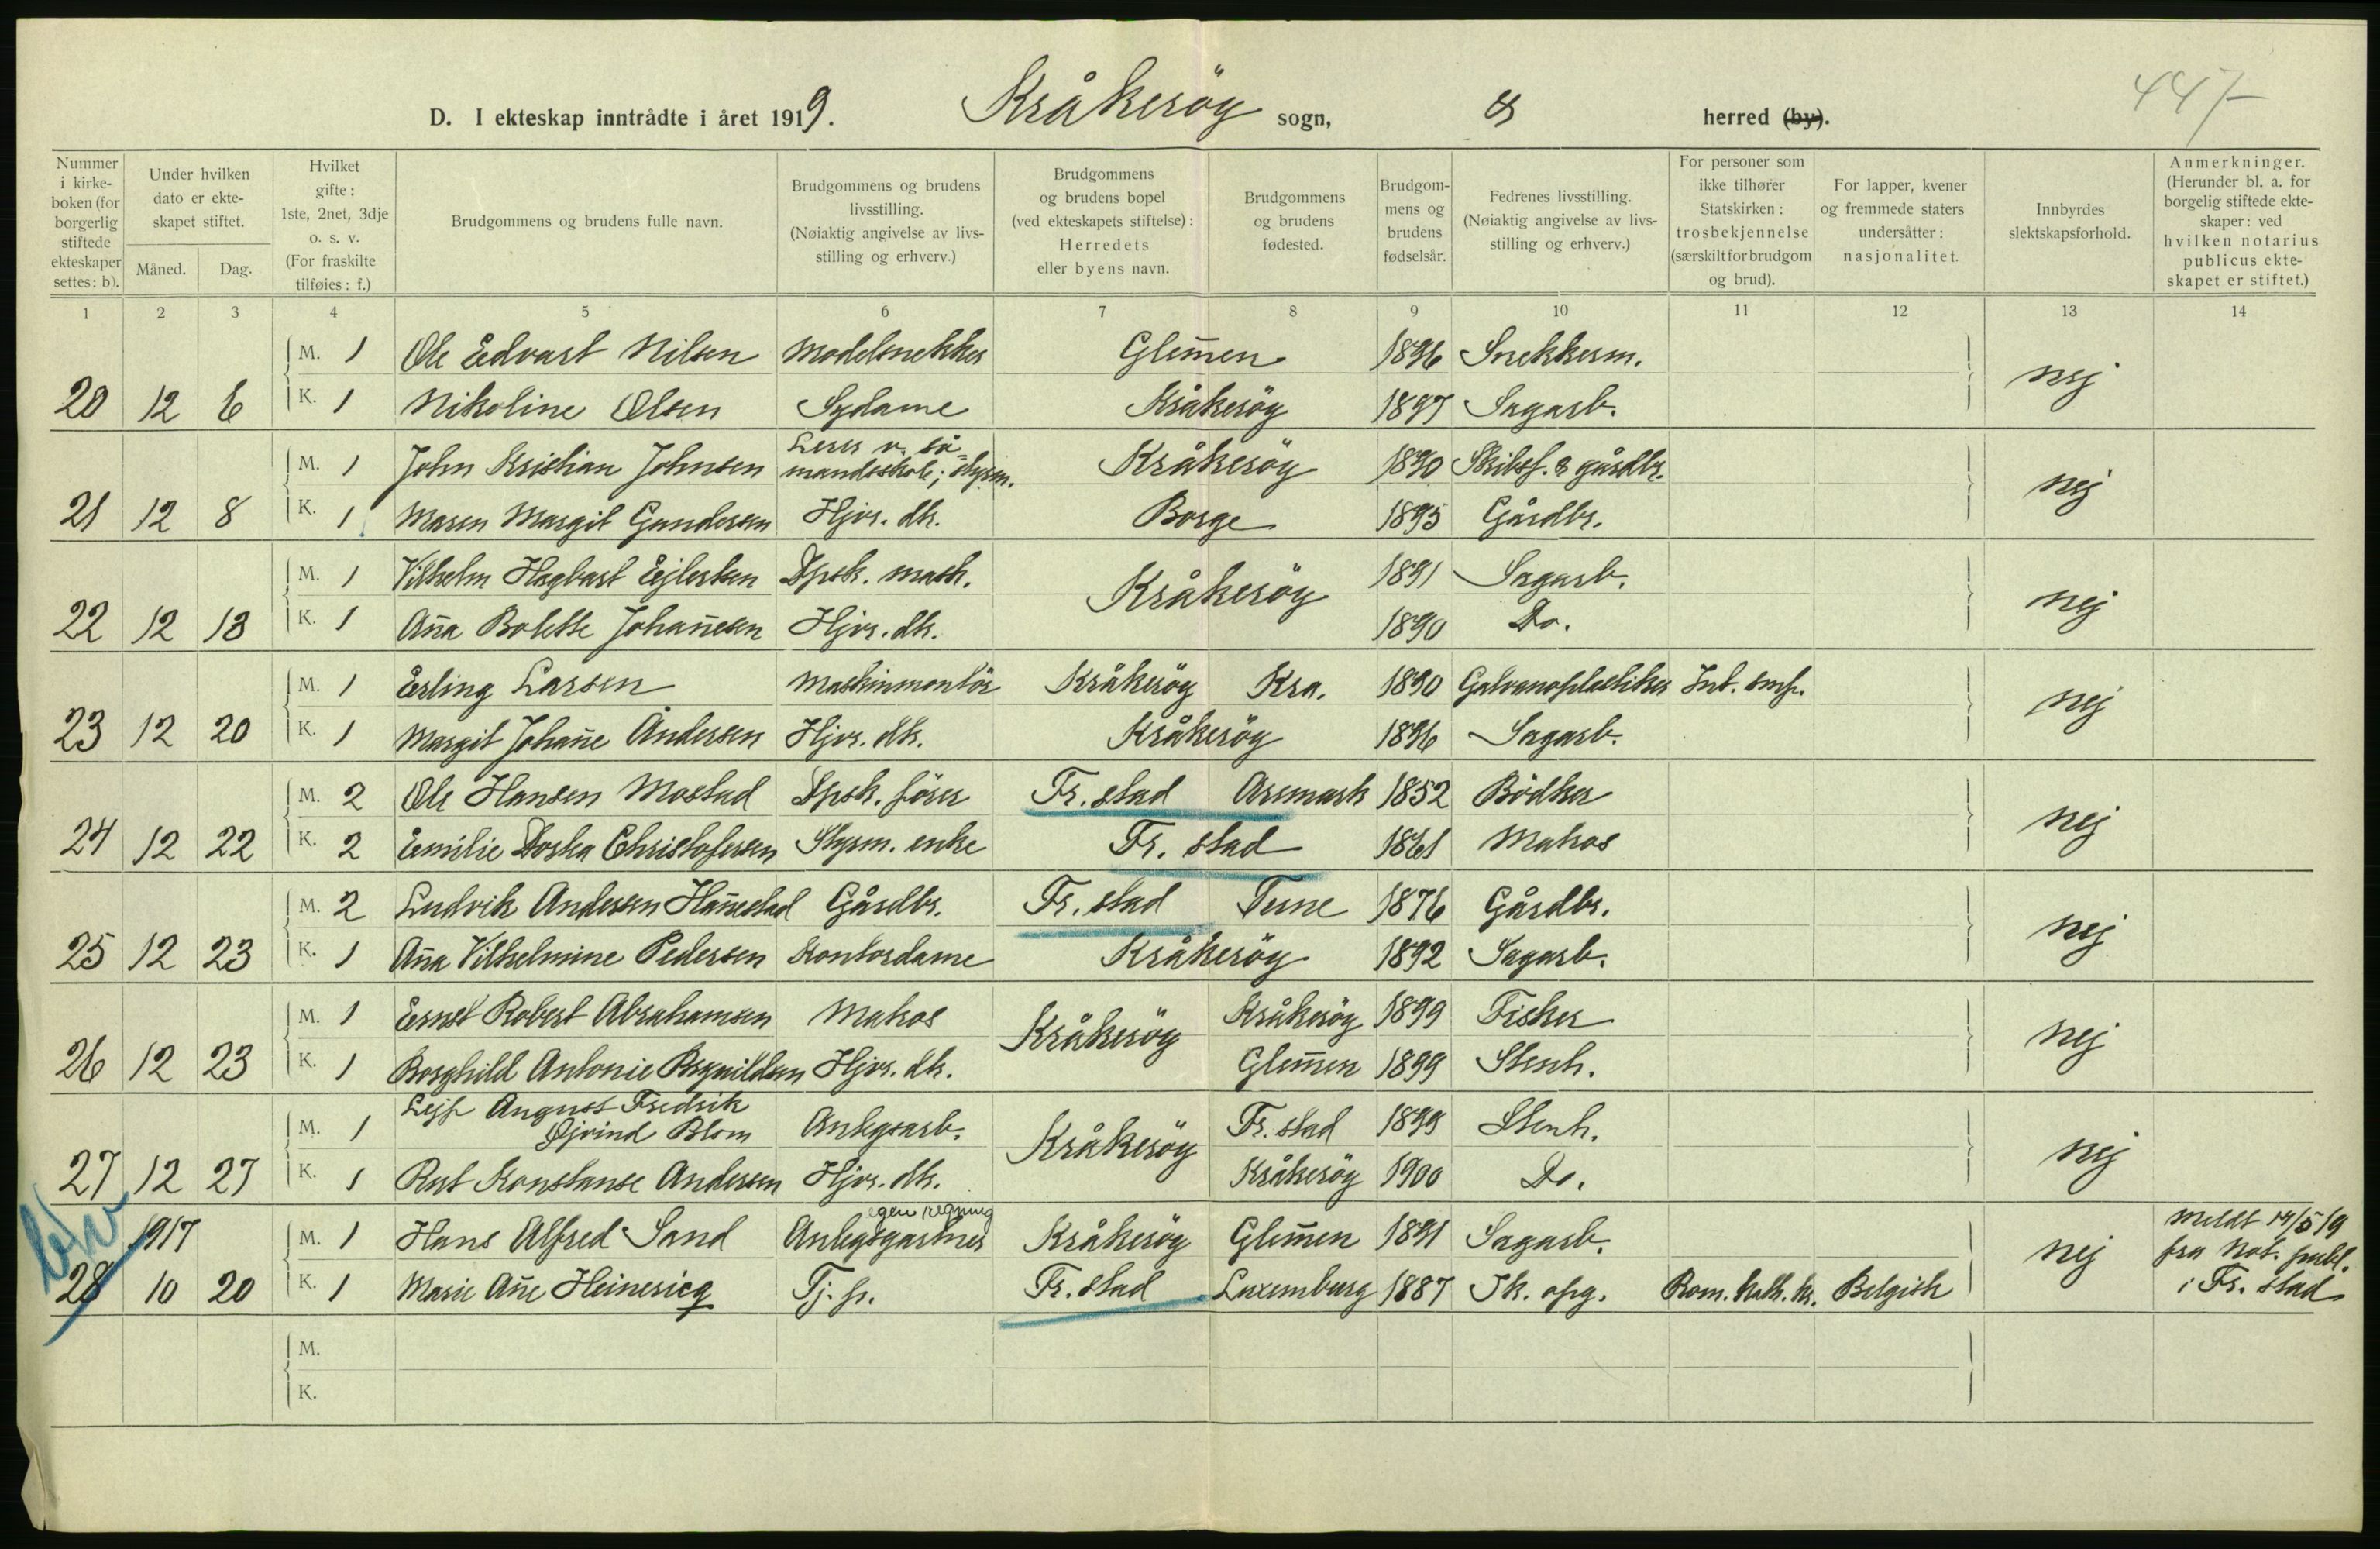 447
D. I ekteskap inntrådte i året 1919. Kråkeröy sogn, & herred (by).
Nummer i kirkeboken (for borgerlig stiftede ekteskaper settes: b).
Under hvilken dato er ekteskapet stiftet.
Måned. Dag.
Hvilket gifte: 1ste, 2net, 3dje o. s. v. (For fraskilte tilføies: f.)
Brudgommens og brudens fulle navn.
Brudgommens og brudens livsstilling. (Nøiaktig angivelse av livsstilling og erhverv.)
Brudgommens og brudens bopel (ved ekteskapets stiftelse): Herredets eller byens navn.
Brudgommens og brudens fødested.
Brudgommens og brudens fødselsår.
Fedrenes livsstilling. (Nøiaktig angivelse av livsstilling og erhverv.)
For personer som ikke tilhører Statskirken: trosbekjennelse (særskilt for brudgom og brud).
For lapper, kvener og fremmede staters undersåtter: nasjonalitet.
Innbyrdes slektskapsforhold.
Anmerkninger. (Herunder bl. a. for borgelig stiftede ekteskaper: ved hvilken notarius publicus ekteskapet er stiftet.)
1 2 3 4 5 6 7 8 9 10 11 12 13 14
M. 1 Ole Edvart Nilsen Modelsnekker Glem̄en 1896 Snekkerm.
20 12 6 K. 1 Nikoline Olsen Sydame Kråkeröy 1897 Sagarb. nej
M. 1 John Kristian Johnsen Lerer v. sömandsskole; styrm. Kråkeröy 1890 Skibsf. & gårdbr.
21 12 8 K. 1 Maren Margit Gundersen Hjvr. dtr. Borge 1895 Gårdbr. nej
M. 1 Vilhelm Hagbart Ejlertsen Dpsk. mask. Kråkeröy 1891 Sagarb.
22 12 13 K. 1 An̄a Bolette Johan̄esen Hjvr. dtr. 1890 Do. nej
M. 1 Erling Larsen Maskinmontör Kråkeröy Kra. 1890 Galvanoplastiker Int. smf.
23 12 20 K. 1 Margit Johan̄e Andersen Hjvr. dtr. Kråkeröy 1896 Sagarb. nej
M. 2 Ole Hansen Mostad Dpsk. förer Fr. stad Aremark 1852 Bödker
24 12 22 K. 2 Emilie Dorthea Christofersen Styrm. enke Fr. stad 1861 Matros nej
M. 2 Ludvik Andersen Han̄estad Gårdbr. Fr. stad Tune 1876 Gårdbr.
25 12 23 K. 1 An̄a Vilhelmine Pedersen Kontordame Kråkeröy 1892 Sagarb. nej
M. 1 Ernst Robert Abrahamsen Matros Kråkeröy Kråkeröy 1899 Fisker
26 12 23 K. 1 Borghild Antonie Bognildsen Hjvr. dtr. Glem̄en 1899 Stenh. nej
M. 1 Lejf August Fredrik
Øjvind Blom Anlegsarb. Kråkeröy Fr. stad 1899 Stenh.
27 12 27 K. 1 Rut Konstanse Andersen Hjvr. dtr. Kråkeröy 1900 Do. nej
1917 M. 1 Hans Alfred Sand Anlegsgartner egen regning Kråkeröy Glem̄en 1891 Sagarb. Meldt 14/5 19
28 10 20 K. 1 Marie An̄e Heinericq Tj. p. Fr. stad Luxemburg 1887 Ik. opg. Rom. kath. kr. Belgisk nej fra Not. publ.
i Fr. stad
M.
K.